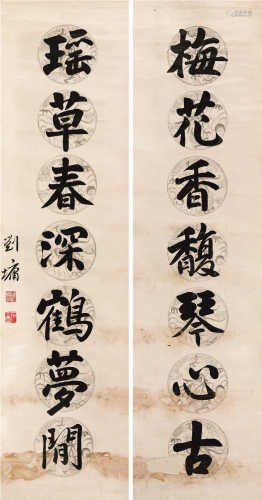 梅花香馥琴心古
瑶草春深鶴夢閒
劉墉